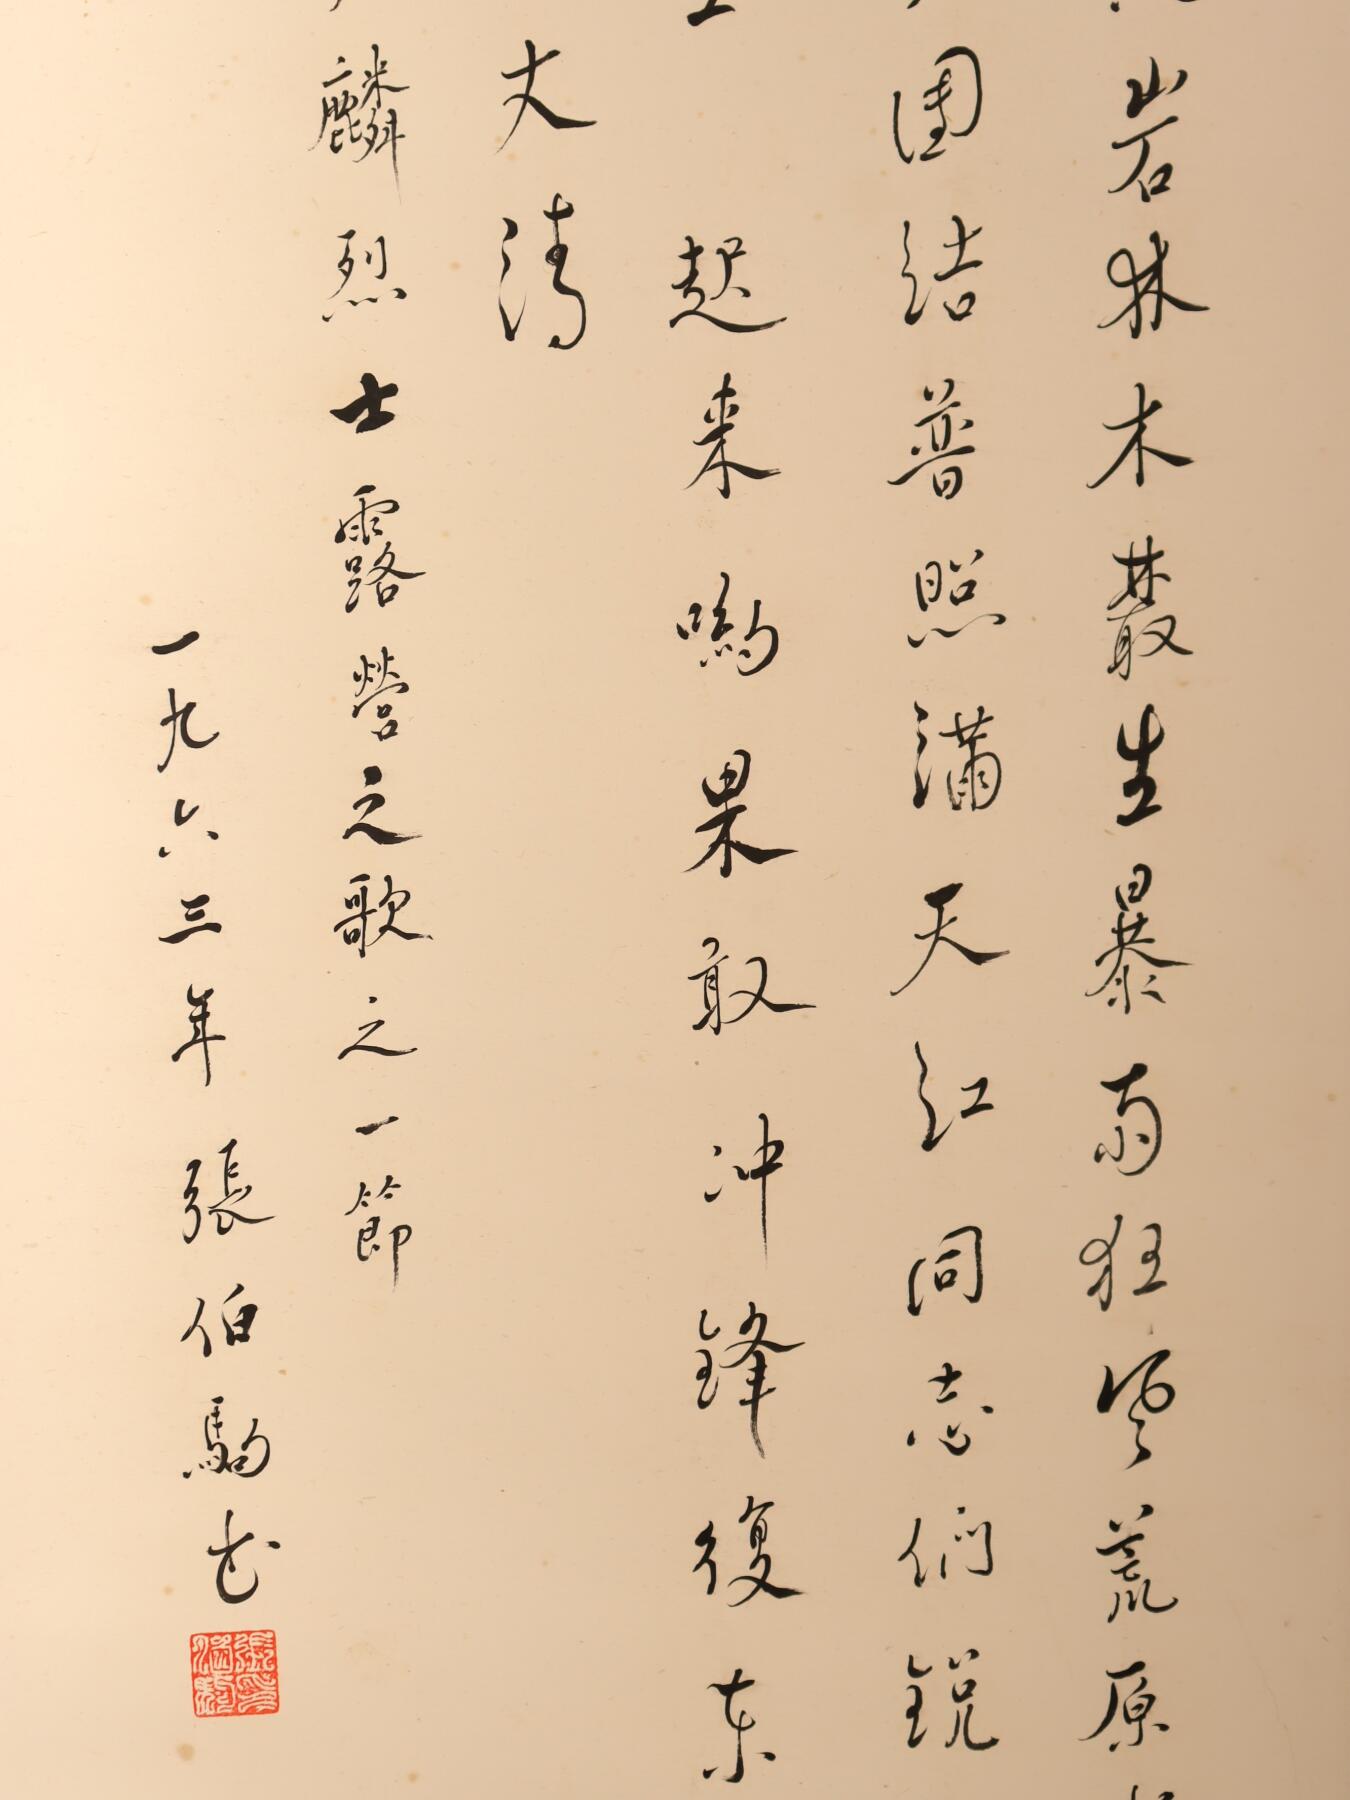 岩林木叢生暴雨狂风荒原
围结普照满天红同志们锐
起来哟果敢冲锋復东
丈清
麟烈士露营之歌之一節
一九六三年張伯駒书